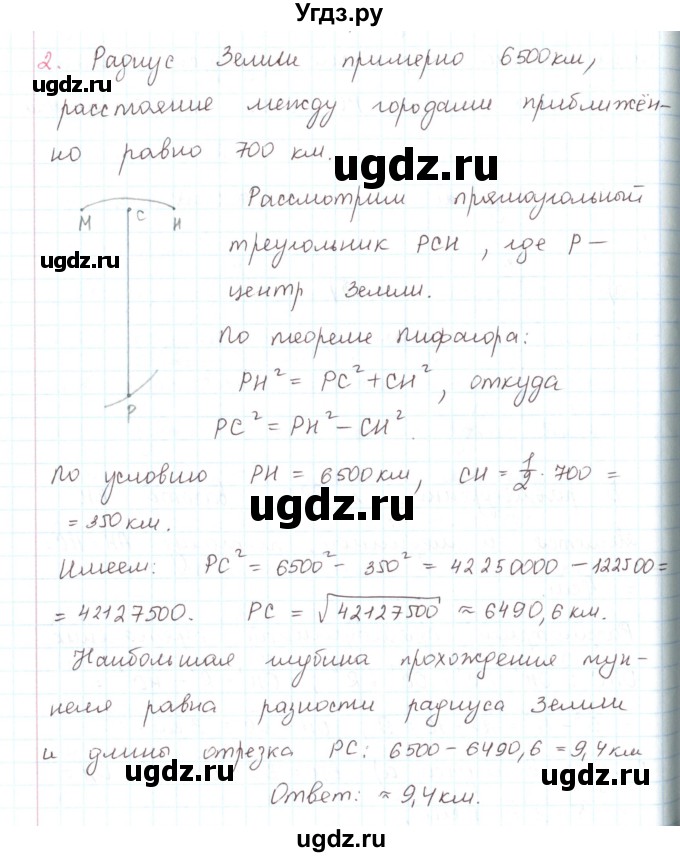 Угдз.ру
2. Радиус Земли примерно 6500 км,
ugdz.ru
расстояние между городами приближён-
но равно 700 км.
ugdz.ru
М С Н
Рассмотрим прямоугольный
треугольник РСН, где Р –
ugdz.ru
центр Земли.
По теореме Пифагора:
PH² = PC² + CH², откуда
Р
PC² = PH² – CH².
По условию PH = 6500 км, CH = 1/2 · 700 =
= 350 км.
ugdz.ru
Имеем: PC² = 6500² – 350² = 42250000 – 122500 =
= 42127500. PC = √42127500 ≈ 6490,6 км.
Наибольшая глубина прохождения тун-
неля равна разности радиуса Земли
и длины отрезка PC: 6500 – 6490,6 = 9,4 км
ugdz.ru
ugdz.ru
Ответ: ≈ 9,4 км.
ugdz.ru